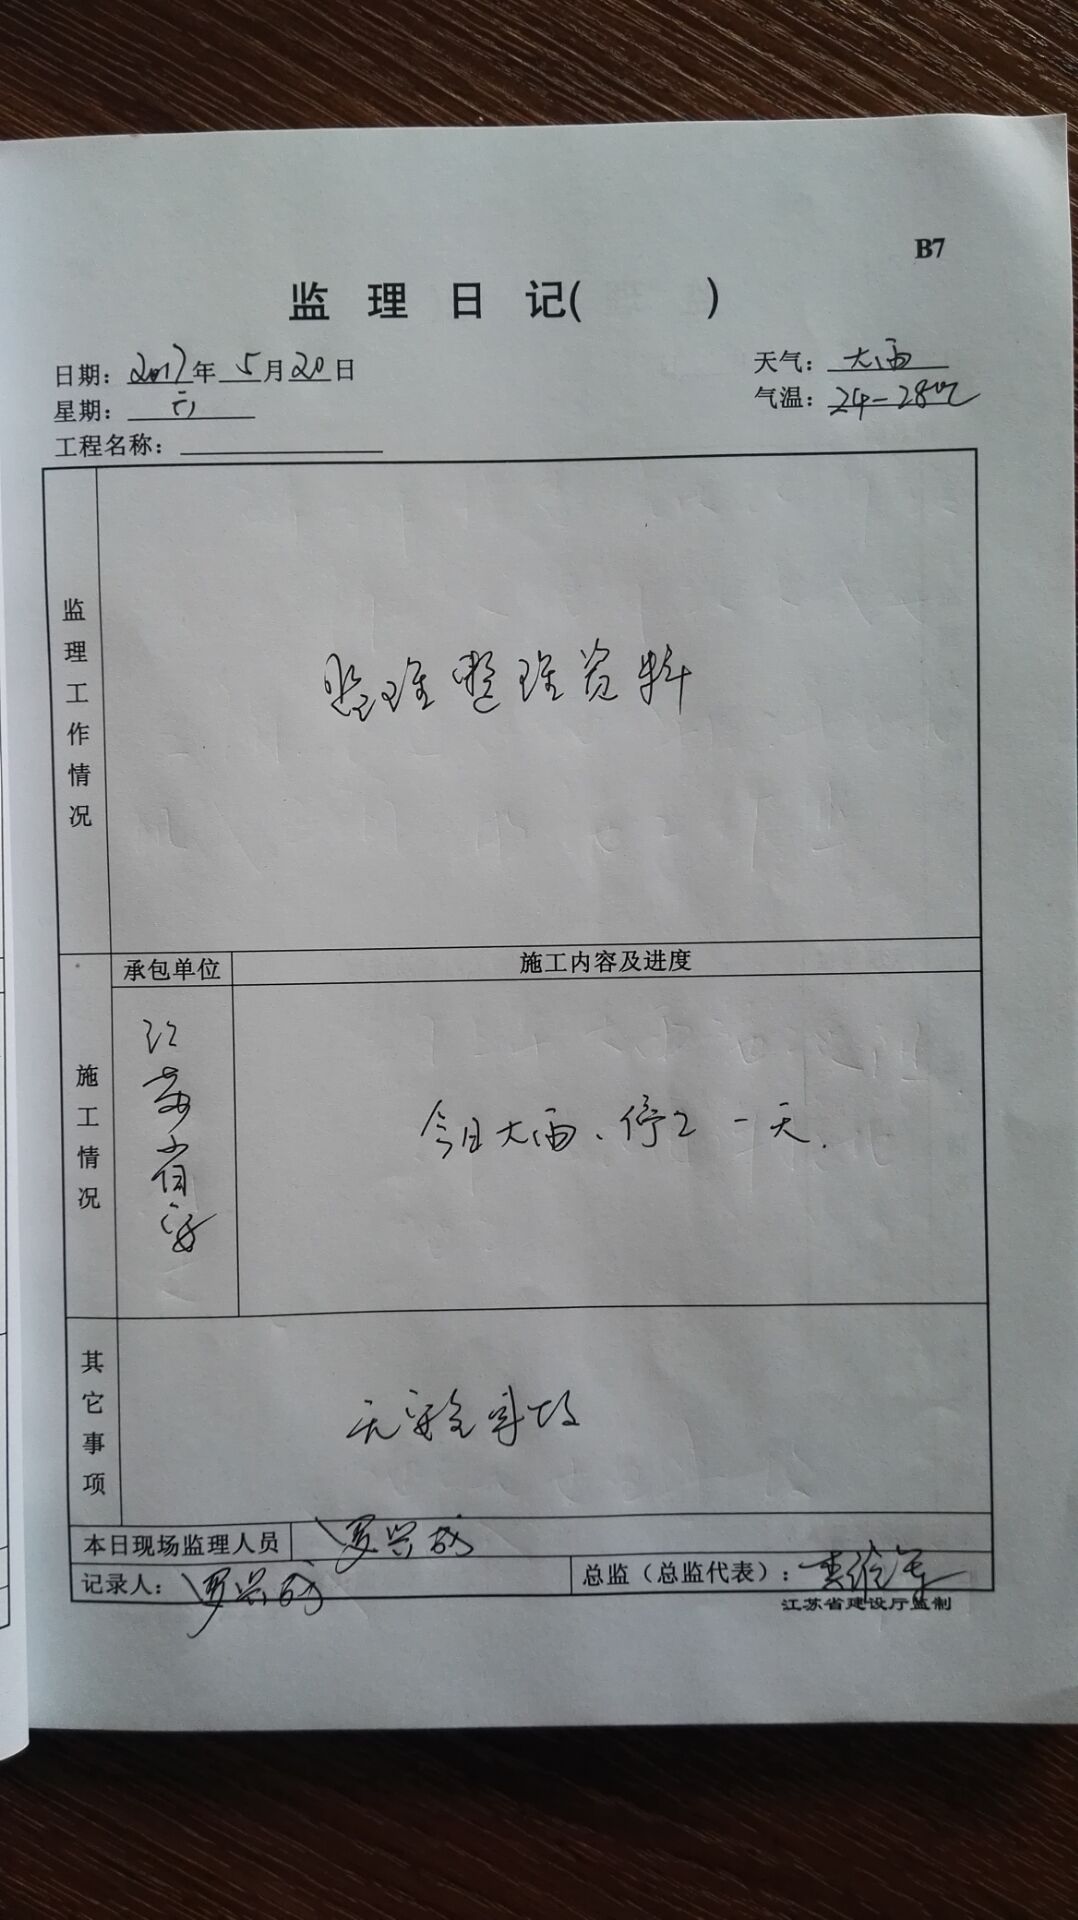 B7
监理日记( )
日期：2017年5月20日
天气：大雨
星期：六
气温：24-28℃
工程名称：
监理工作情况
监理整理资料
承包单位
施工内容及进度
施工情况
江苏省安
今日大雨、停工一天.
其它事项
无安全事故
本日现场监理人员
罗兴成
记录人：罗兴成
总监（总监代表）：
江苏省建设厅监制